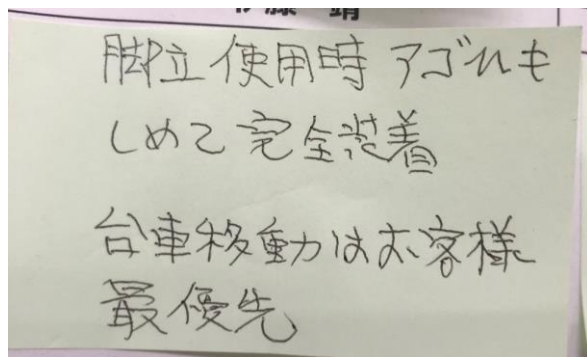 脚立使用時アゴひも
しめて完全装着
台車移動はお客様
最優先